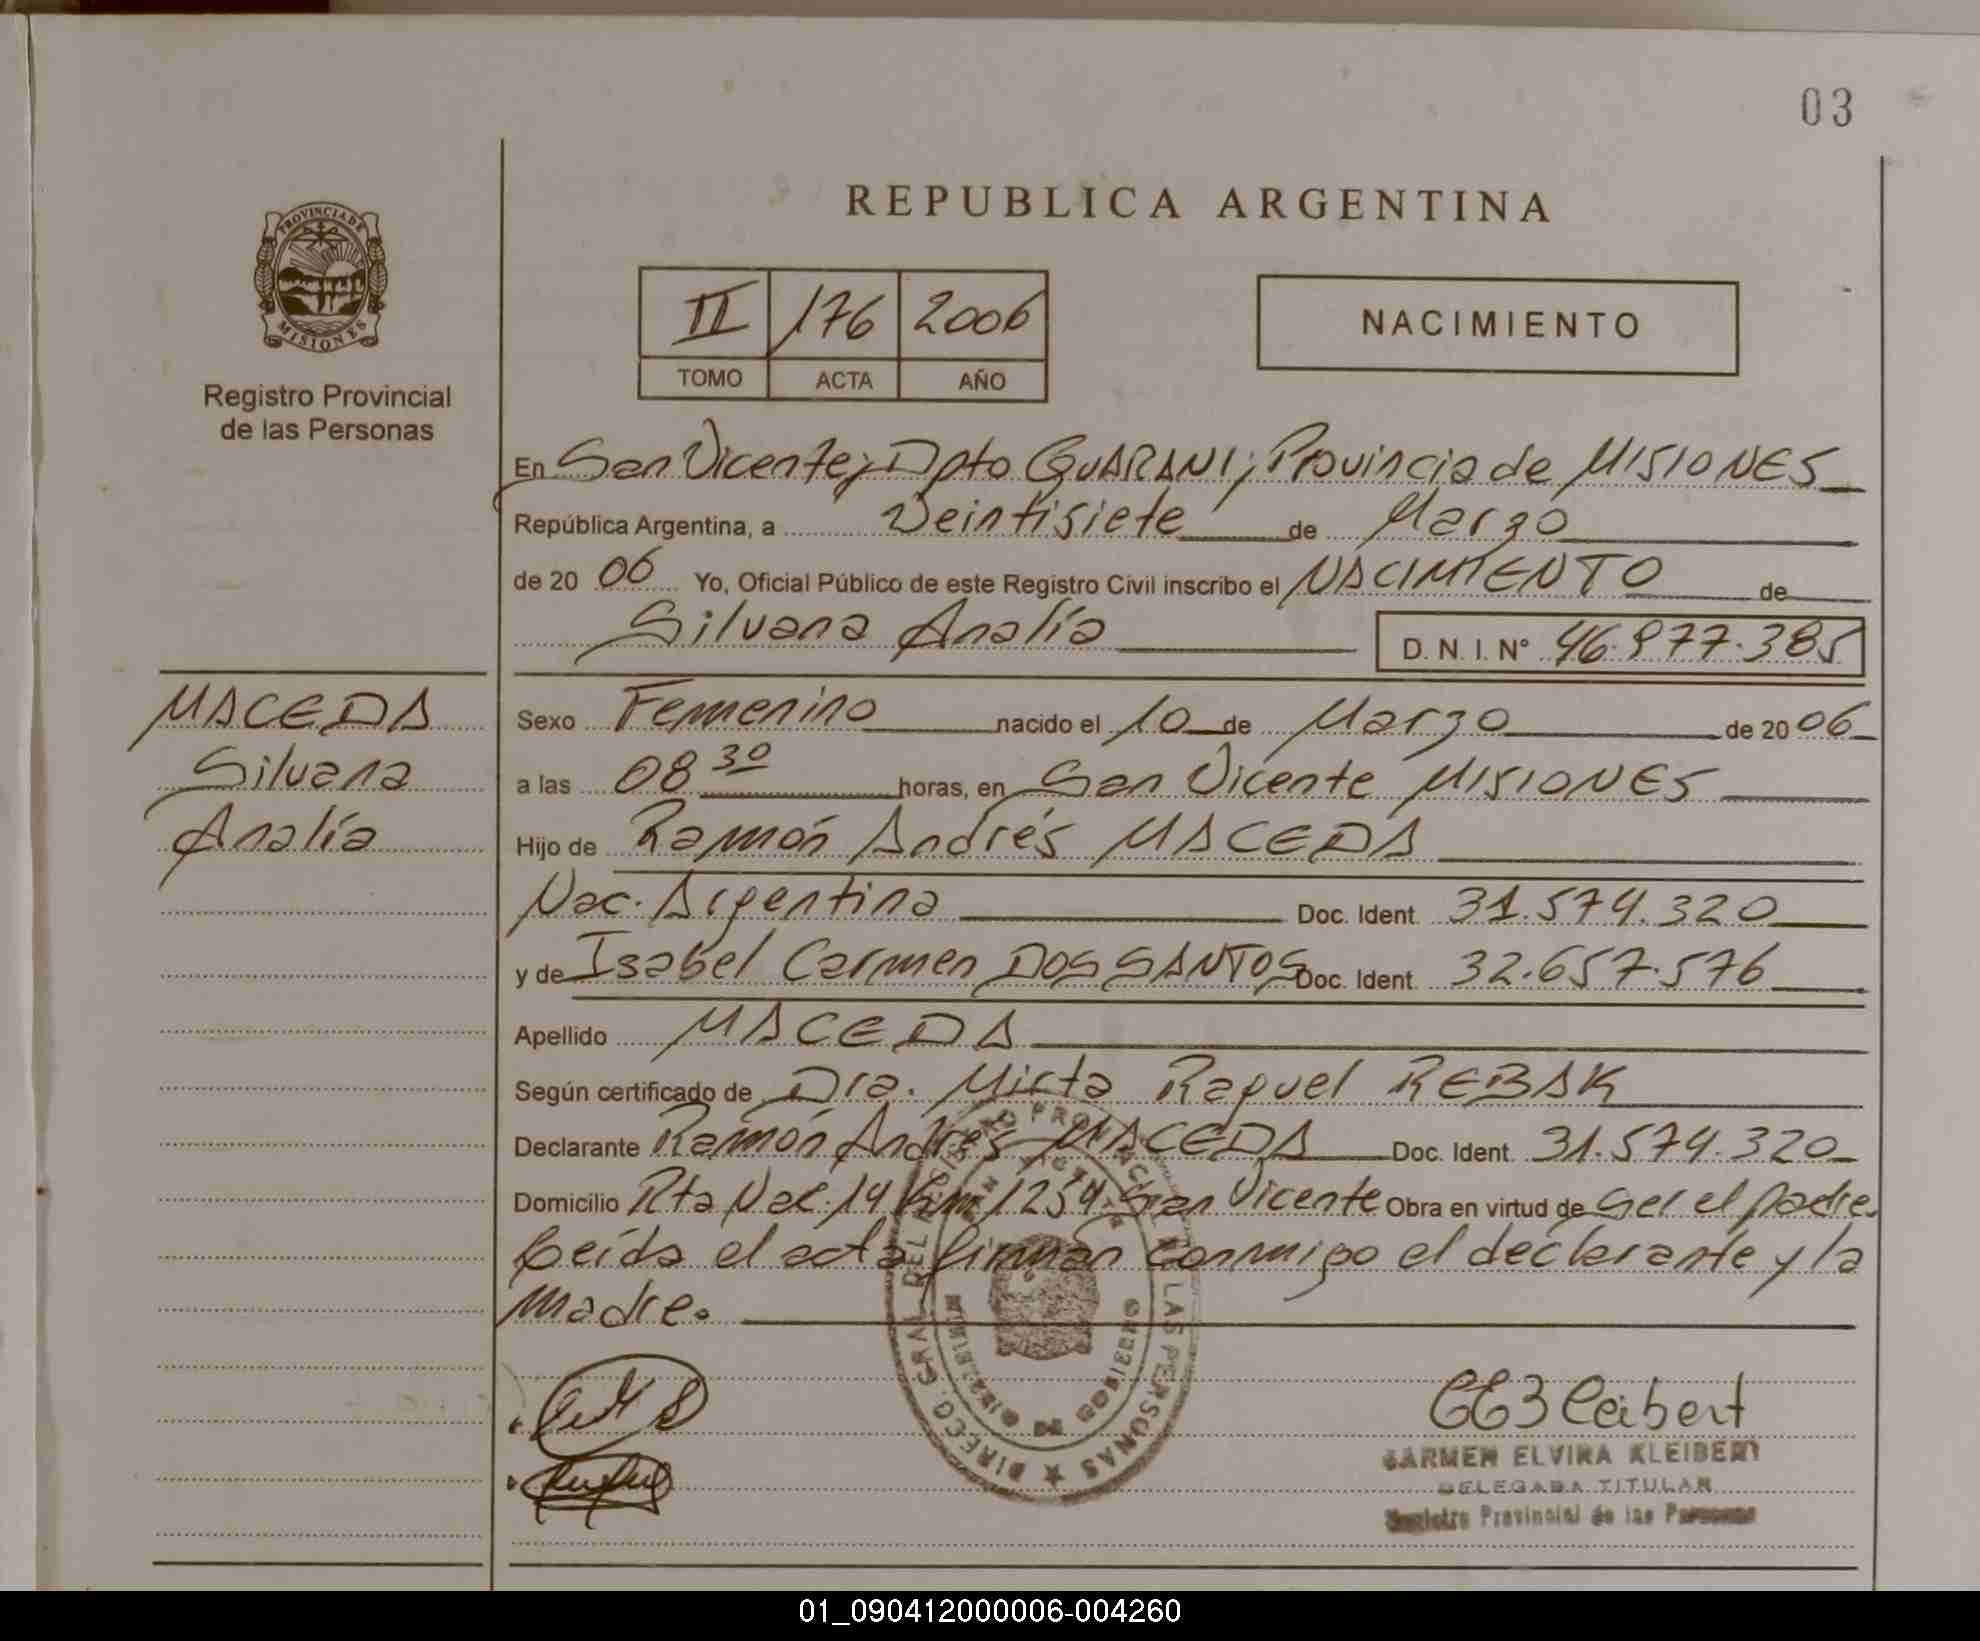 03
REPUBLICA ARGENTINA
PROVINCIA DE
MISIONES
Registro Provincial
de las Personas
II 176 2006
TOMO ACTA AÑO
NACIMIENTO
En San Vicente; Dpto GUARANI; Provincia de MISIONES
República Argentina, a Veintisiete de Marzo
de 20 06 Yo, Oficial Público de este Registro Civil inscribo el NACIMIENTO de
Silvana Analía D. N. I. N° 46.977.385
MACEDA
Silvana
Analía
Sexo Femenino nacido el 10 de Marzo de 20 06
a las 08 30 horas, en San Vicente MISIONES
Hijo de Ramón Andrés MACEDA
Nac. Argentina Doc. Ident. 31.574.320
y de Isabel Carmen DOS SANTOS Doc. Ident. 32.657.576
Apellido MACEDA
Según certificado de Dra. Mirta Raquel REBAK
Declarante Ramón Andrés MACEDA Doc. Ident. 31.574.320
Domicilio Rta Nac. 14 Km 1254 San Vicente Obra en virtud de Ser el padre
Leída el acta firman conmigo el declarante y la
madre.
CARMEN ELVIRA KLEIBERT
DELEGADA TITULAR
Registro Provincial de las Personas
01_090412000006-004260